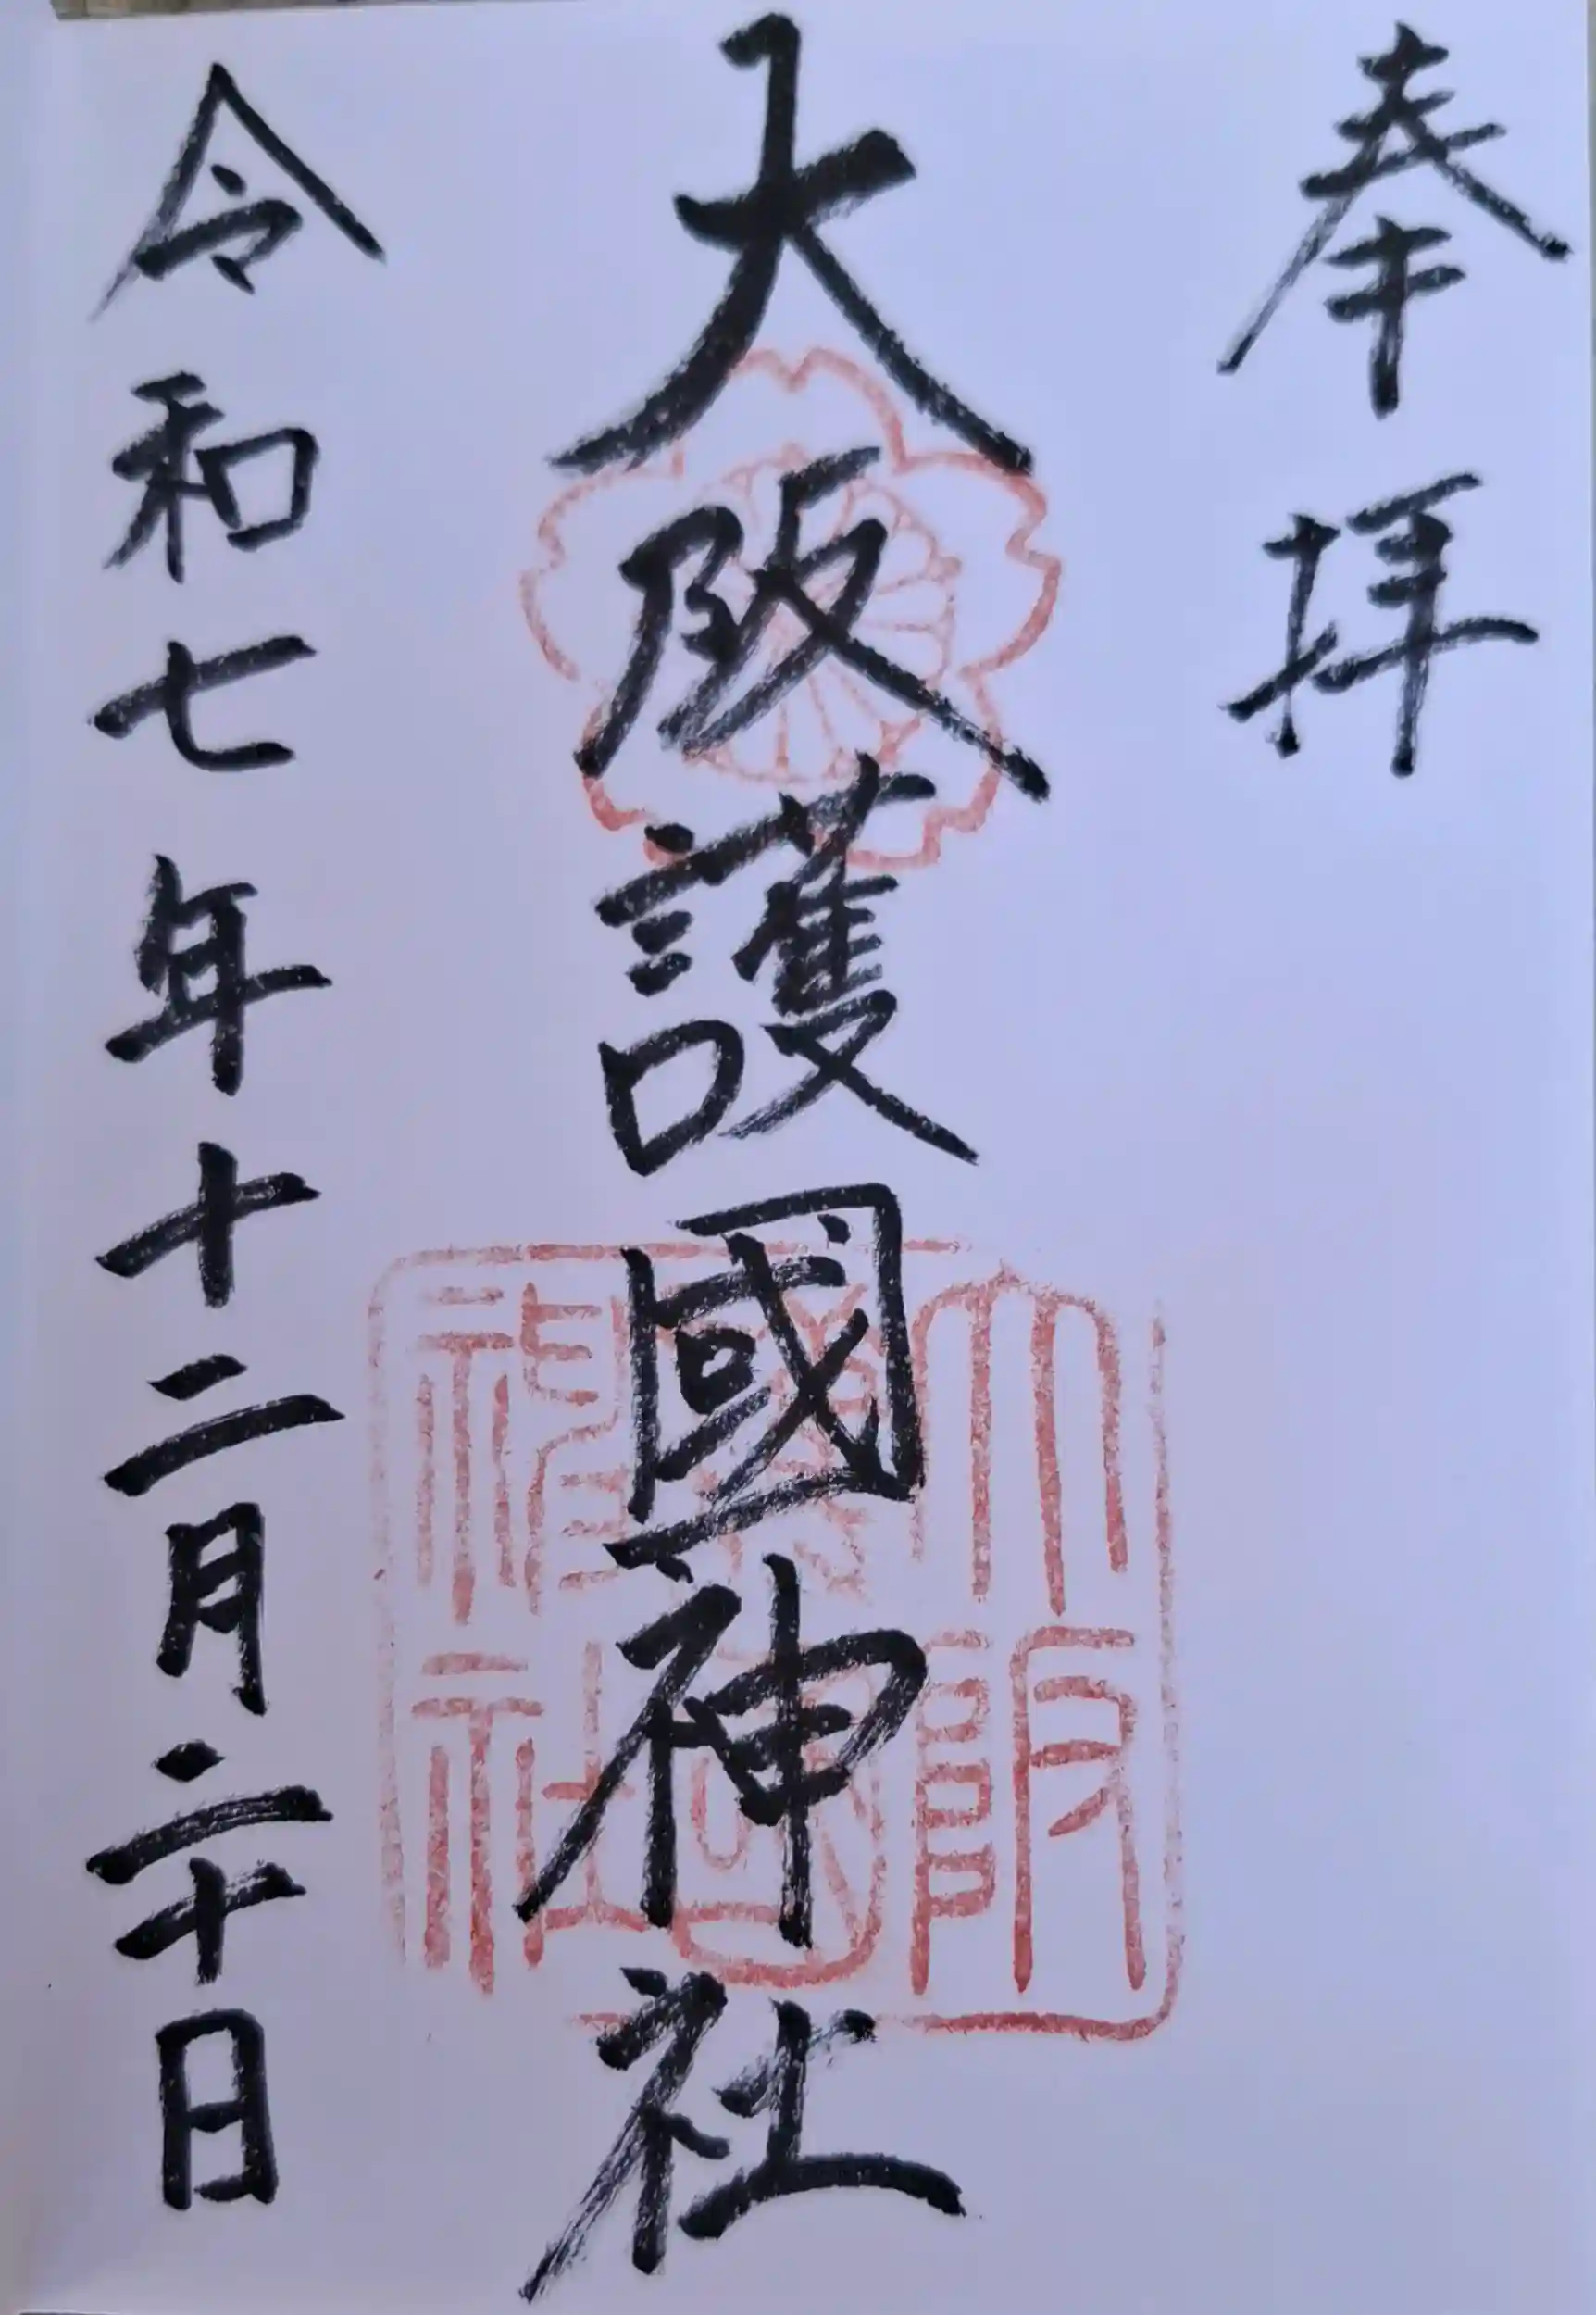 奉拝
大阪護國神社
令和七年十二月二十日
大阪護國神社